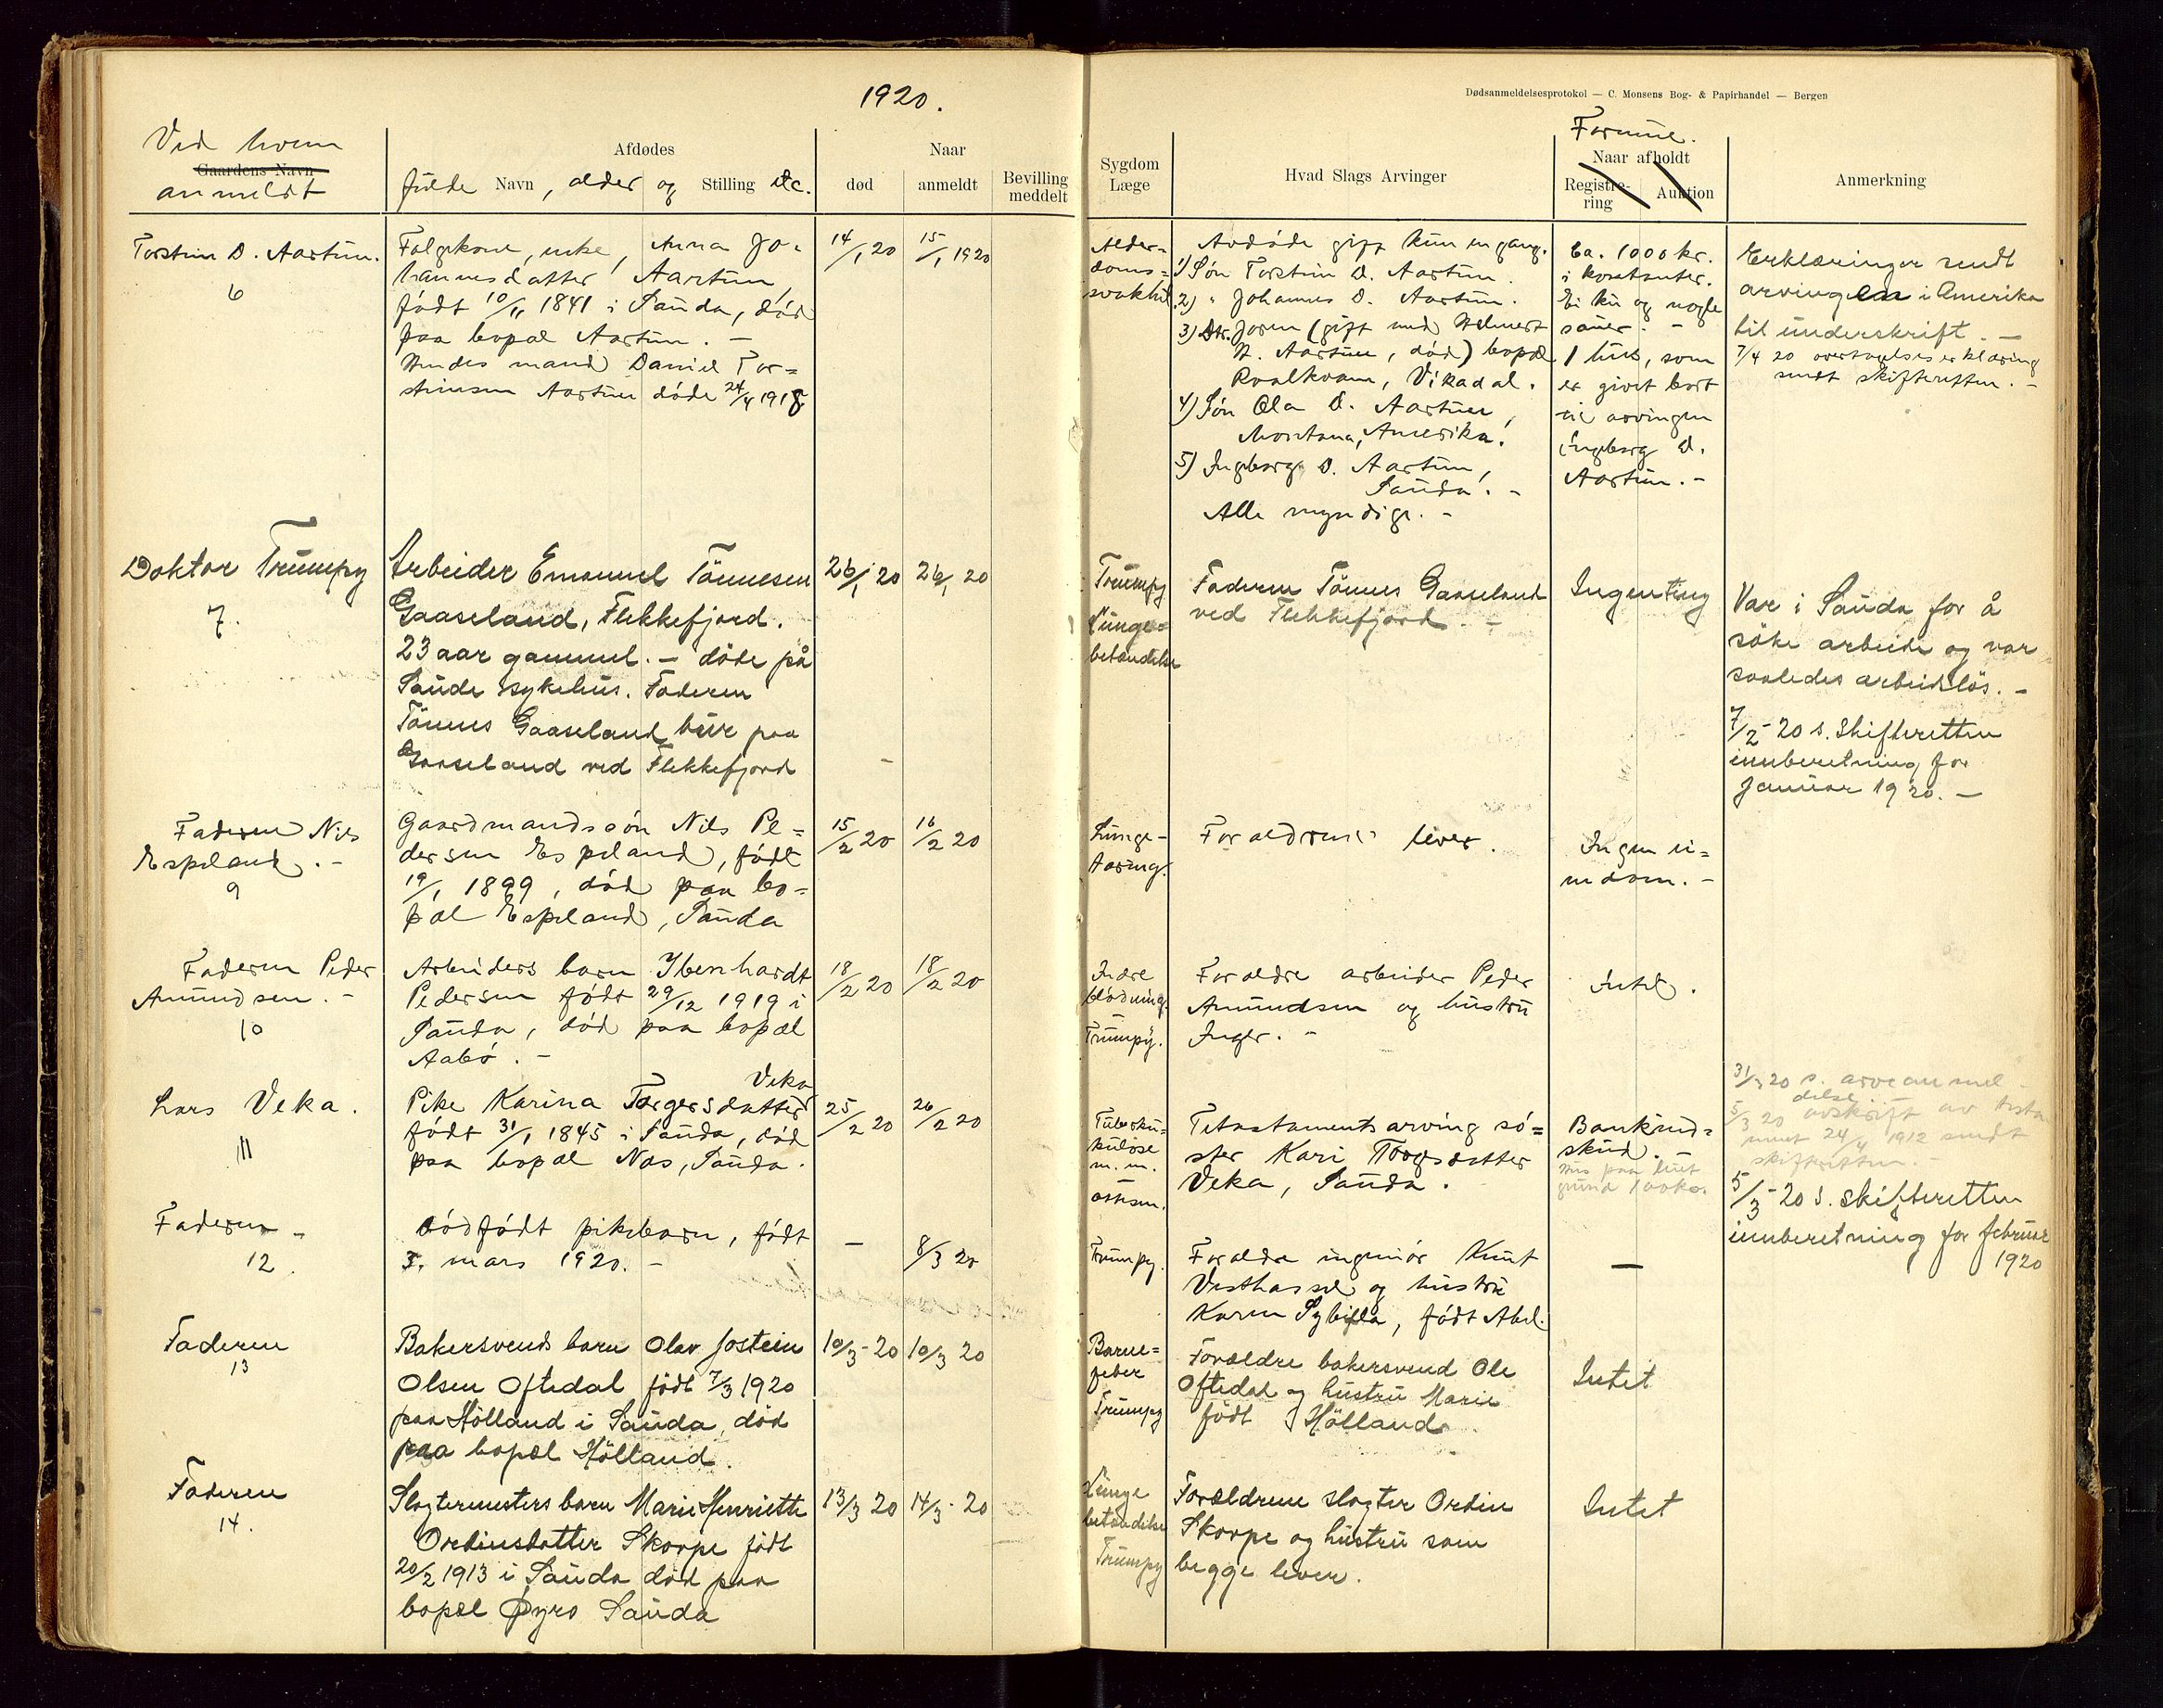 1920.
Dødsanmeldelsesprotokol — C. Monsens Bog- & Papirhandel — Bergen
Ved hvem
Gaardens Navn
anmeldt
Afdødes
fulde Navn, alder og Stilling etc.
Naar
død
anmeldt
Bevilling
meddelt
Sygdom
Læge
Hvad Slags Arvinger
Formue.
Naar afholdt
Registre-
ring
Auktion
Anmerkning
Torstein D. Aartun.
6
Folgekone, enke, Anna Jo-
hannesdatter Aartun,
født 10/11 1841 i Sauda, død
paa bopæl Aartun. -
Hendes mand Daniel Tor=
steinsen Aartun døde 24/4 1918
14/1 20
15/1 1920
Alder=
doms=
svakhet.
Avdøde gift kun en gang.
1) Søn Torstein D. Aartun.
2) " Johannes D. Aartun.
3) Dtr. Joren (gift med Helmert
H. Aartun, død) bopæl
Roalkvam, Vikadal.
4) Søn Ola D. Aartun,
Montana, Amerika.
5) Ingeborg D. Aartun,
Sauda. -
Alle myndige. -
Ca. 1000 kr.
i kontanter.
Ei ku og nogle
sauer. -
1 hus, som
er givet bort
til arvingen
Ingeborg D.
Aartun. -
Erklæringer sendt
arvingen i Amerika
til underskrift. -
7/4 20 overtagelseserklæring
sendt skifteretten. -
Doktor Trumpy
7.
Arbeider Emanuel Tönnesen
Gaaseland, Flekkefjord.
23 aar gammel. - döde på
Saude sykehus. Faderen
Tönnes Gaaseland bur paa
Gaaseland ved Flekkefjord
26/1 20
26/1 20
Trumpy
Lunge=
betændelse
Faderen Tönnes Gaaseland
ved Flekkefjord. -
Ingenting
Var i Sauda for å
söke arbeide og var
saaledes arbeidslös. -
7/2-20 s. Skifteretten
innberetning for
Januar 1920. -
Faderen Nils
Espeland. -
9
Gaardmandssøn Nils Pe=
dersen Espeland, født
19/1 1899, død paa bo=
pæl Espeland, Sauda
15/2 20
16/2 20
Lunge-
tæring.
Forældrene lever.
Ingen ei=
endom. -
Faderen Peder
Amundsen. -
10
Arbeiders barn Ibenhardt
Pedersen født 29/12 1919 i
Sauda, død paa bopæl
Aabø. -
18/2 20
18/2 20
Indre
blødning.
-
Trumpy.
Forældre arbeider Peder
Amundsen og hustru
Inger. -
Intet.
Lars Veka.
11
Veka
Pike Karina Torgersdatter
født 31/1 1845 i Sauda, død
paa bopæl Nes, Sauda.
25/2 20
26/2 20
Tuberku-
kuløse
m. m.
Testaments arving sø=
ster Kari Torgsdatter
Veka, Sauda.
Bankind=
skud. -
Hus paa leiet
grund 100 kr.
31/3 20 s. arveanmel
delse
5/3 20 avskrift av testa
ment 24/4 1912 sendt
skifteretten. -
5/3-20 s. skifteretten
innberetning for februar
1920
Faderen -
12.
Dödfödt pikebarn, født
3. mars 1920. -
-
8/3 20
Trumpy.
Forældre ingeniør Knut
Vesthassel og hustru
Karen Sybilla, født Abel.
—
Faderen
13
Bakersvends barn Olav Jostein
Olsen Oftedal födt 7/3 1920
paa Hölland i Sauda, död
paa bopæl Hölland.
10/3-20
10/3 20
Barne=
feber
Trumpy
Forældre bakersvend Ole
Oftedal og hustru Marie
födt Hölland
Intet
Faderen
14.
Slagtermesters barn Marie Henriette
Ordinsdatter Skorpe födt
20/2 1913 i Sauda död paa
bopæl Øyro Sauda
13/3 20
14/3-20
Lunge
betændelse
Trumpy
Forældrene slagter Ordin
Skorpe og hustru som
begge lever.
Intet